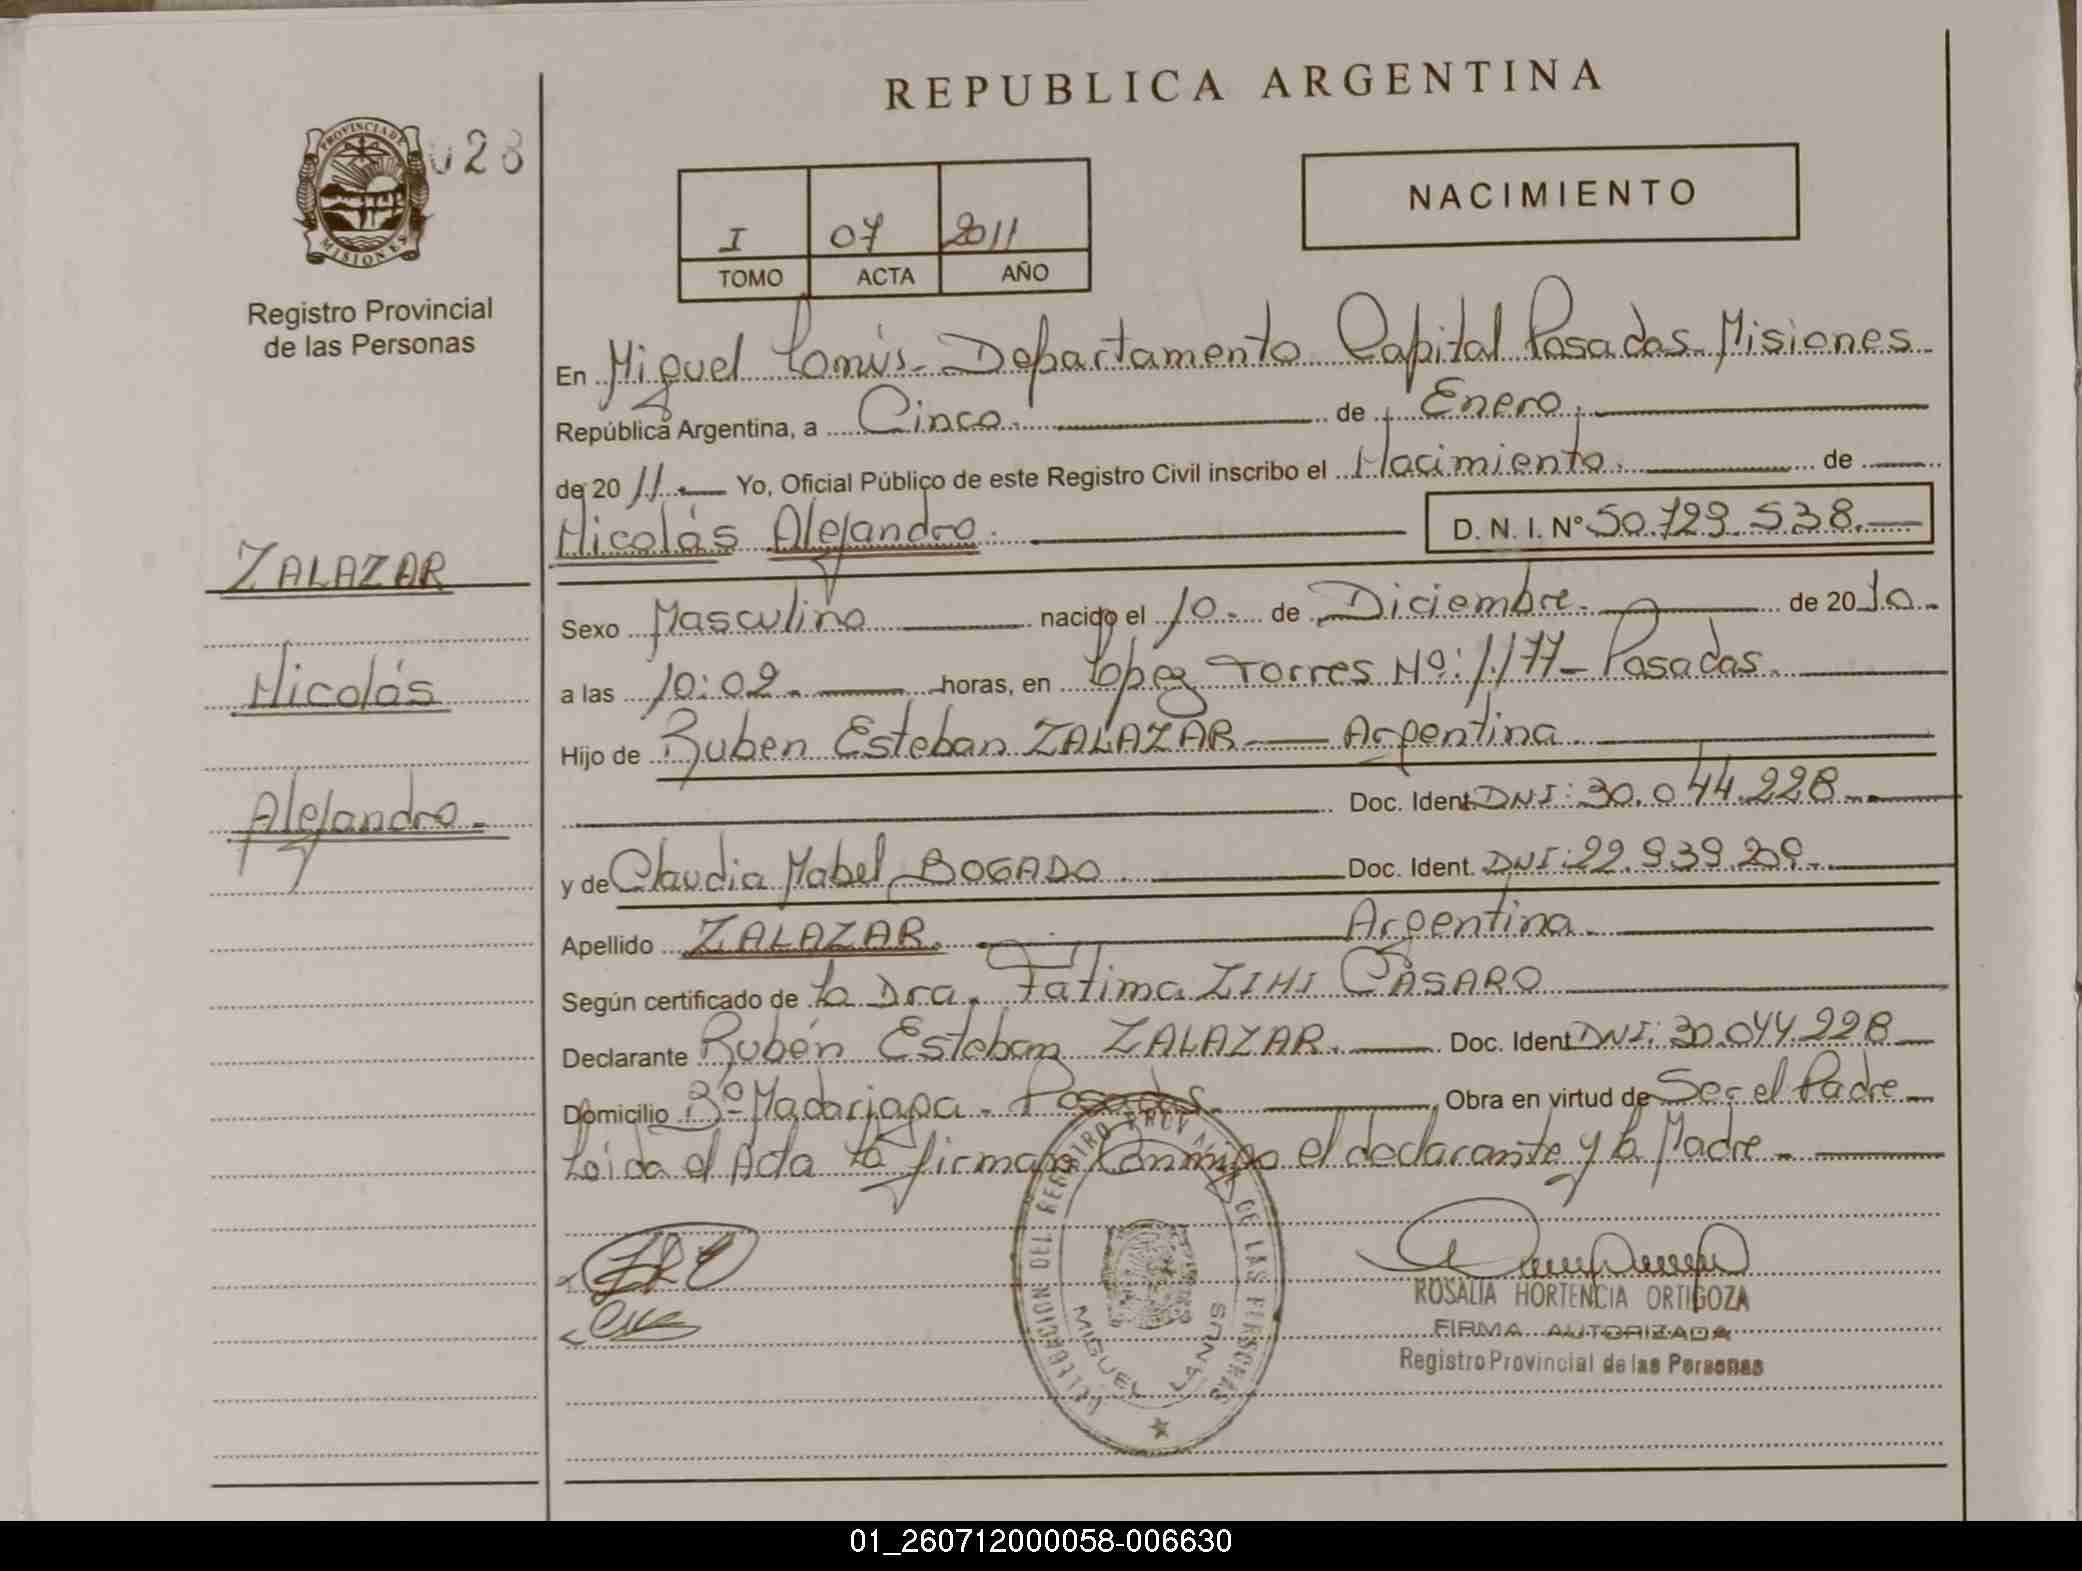 REPUBLICA ARGENTINA
PROVINCIA DE
MISIONES
028
Registro Provincial
de las Personas
I 07 2011
TOMO ACTA AÑO
NACIMIENTO
En Miguel Lanús - Departamento Capital Posadas - Misiones
República Argentina, a Cinco. de Enero,
de 2011. Yo, Oficial Público de este Registro Civil inscribo el Nacimiento. de
Nicolás Alejandro. D. N. I. N° 50.729.538.
ZALAZAR
Nicolás
Alejandro.
Sexo Masculino nacido el 10. de Diciembre. de 2010.
a las 10:02. horas, en López Torres Nº: 1.177 - Posadas.
Hijo de Ruben Esteban ZALAZAR — Argentina
Doc. Ident. DNI: 30.044.228
y de Claudia Mabel BOGADO. Doc. Ident. DNI: 22.939.209.
Apellido ZALAZAR. Argentina
Según certificado de la Dra. Fatima CASARO
Declarante Rubén Esteban ZALAZAR. Doc. Ident DNI: 30.044.228
Domicilio Bº Madariaga - Posadas. Obra en virtud de Ser el Padre
Leida el Acta la firman Conmigo el declarante y la Madre
DELEGACION DEL REGISTRO PROVINCIAL DE LAS PERSONAS
MIGUEL LANUS
ROSALIA HORTENCIA ORTIGOZA
FIRMA AUTORIZADA
Registro Provincial de las Personas
01_260712000058-006630